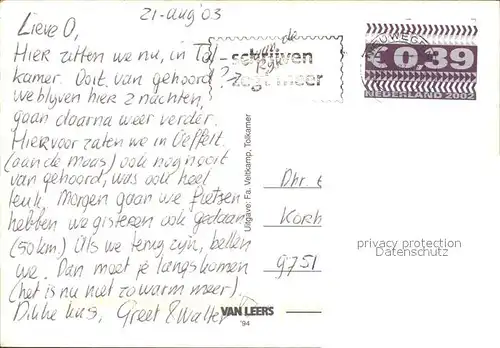 21-aug '03
Lieve O,
Hier zitten we nu, in Tol
kamer. Ooit van gehoord
we blyven hier 2 nachten,
gaan daarna weer verder.
Hiervoor zaten we in Oeffelt.
(aan de maas) ook nog nooit
van gehoord, was ook heel
leuk. Morgen gaan we fietsen
hebben we gisteren ook gedaan
(50 km.) Als we terug zijn, bellen
we. Dan moet je langs komen
(het is nu niet zo warm meer).
Dikke kus, Greet & Walter
schrijven
zegt meer
€ 0,39
NEDERLAND 2002
Uitgave: Fa. Veltkamp, Tolkamer
Dhr
Korh
9751
privacy protection
Datenschutz
VAN LEERS
'94